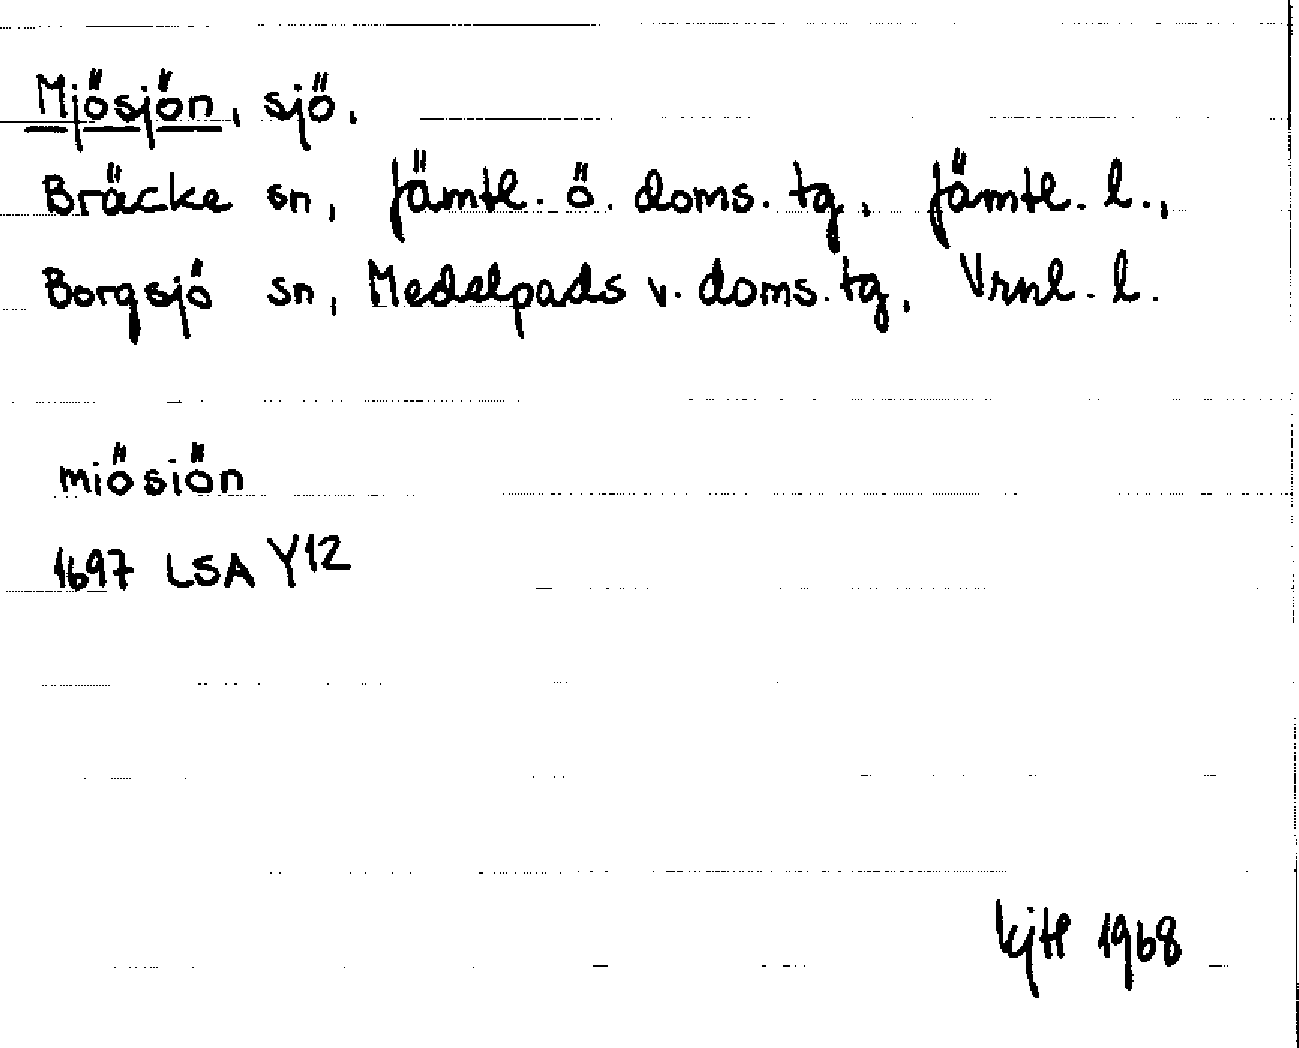 Mjösjön, sjö.
Bräcke sn, Jämtl. ö. doms. tg, Jämtl. l.,
Borgsjö sn, Medelpads v. doms. tg, Vrnl. l.
miösiön
1697 LSA Y12
1968